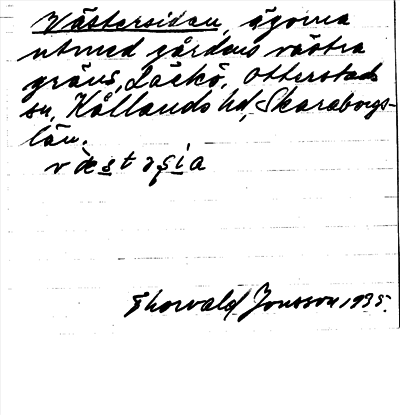 Västersidan, ägorna
utmed gårdens västra
gräns, Läckö, Otterstads
sn, Kållands hd, Skaraborgs-
län.
Thorvald Jonsson 1935.